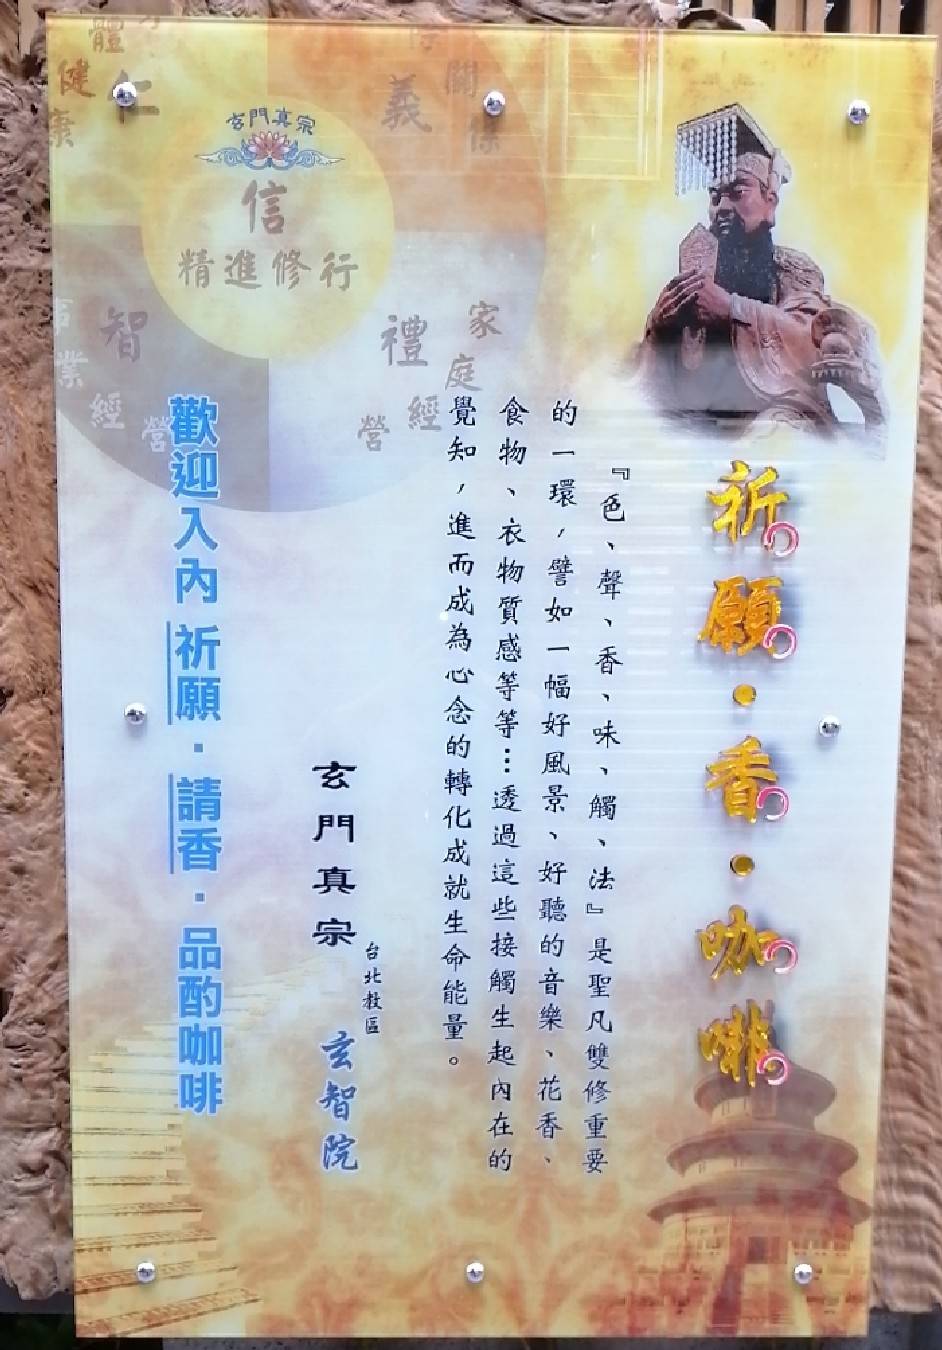 祈願・香・咖啡
『色、聲、香、味、觸、法』是聖凡雙修重要
的一環，譬如一幅好風景、好聽的音樂、花香、
食物、衣物質感等等…透過這些接觸生起內在的
覺知，進而成為心念的轉化成就生命能量。
玄門真宗
台北教區
玄智院
歡迎入內 祈願．請香．品酌咖啡
玄門真宗
信
精進修行
仁
體
健康
義
關係
智
事業經營
禮
家庭經營